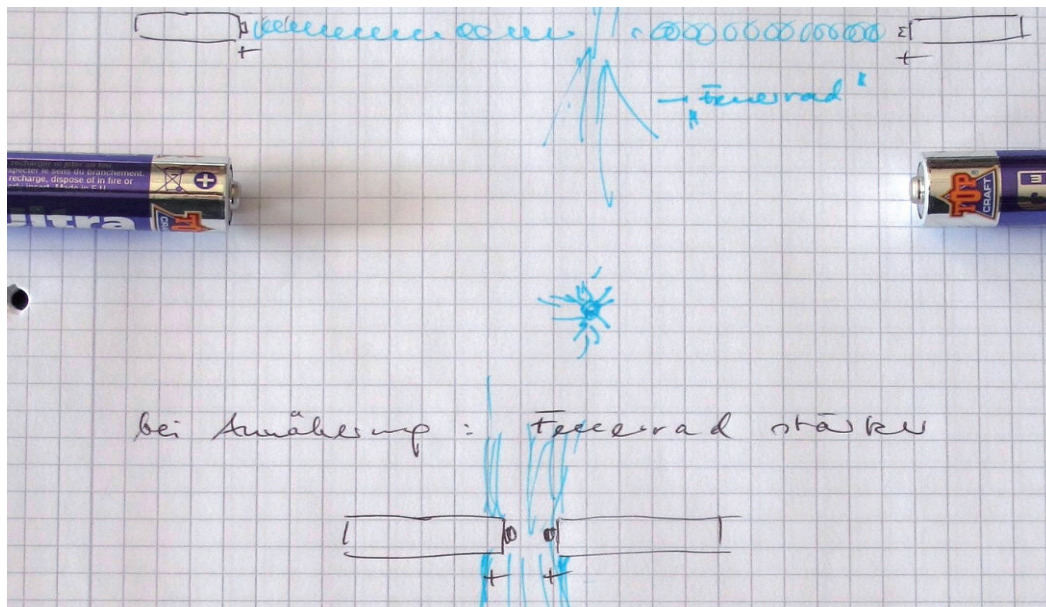 + +
"Feuerrad"
recharger ni jeter au feu
specter le sens du branchement.
recharge, dispose of in fire or
Made in E.U.
+
ultra
TOP
TOP
CRAFT
bei Annäherung : Feuerrad stärker
+ +